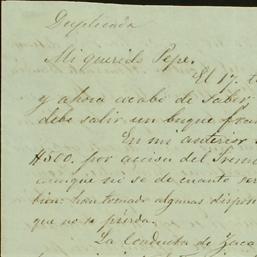 Duplicada
Mi querido Pepe.
El 17.
y ahora acabo de saber,
debe salir un buque fran
En mi anterior
$500. por acción del
aunque ni se de cuanto ser
bien: han tomado algunas dispos
que no se pierda.
La Conducta de Zaca